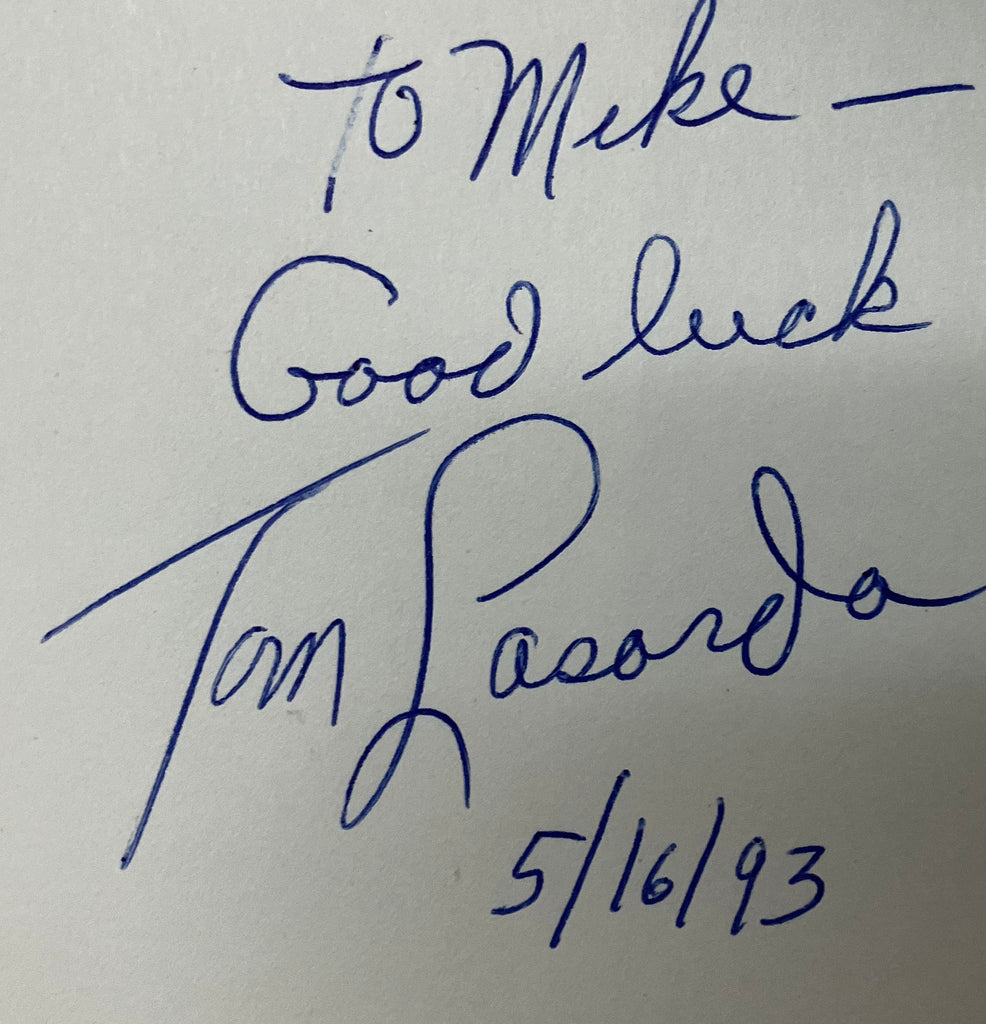 To Mike —
Good luck
Tom Lasorda
5/16/93